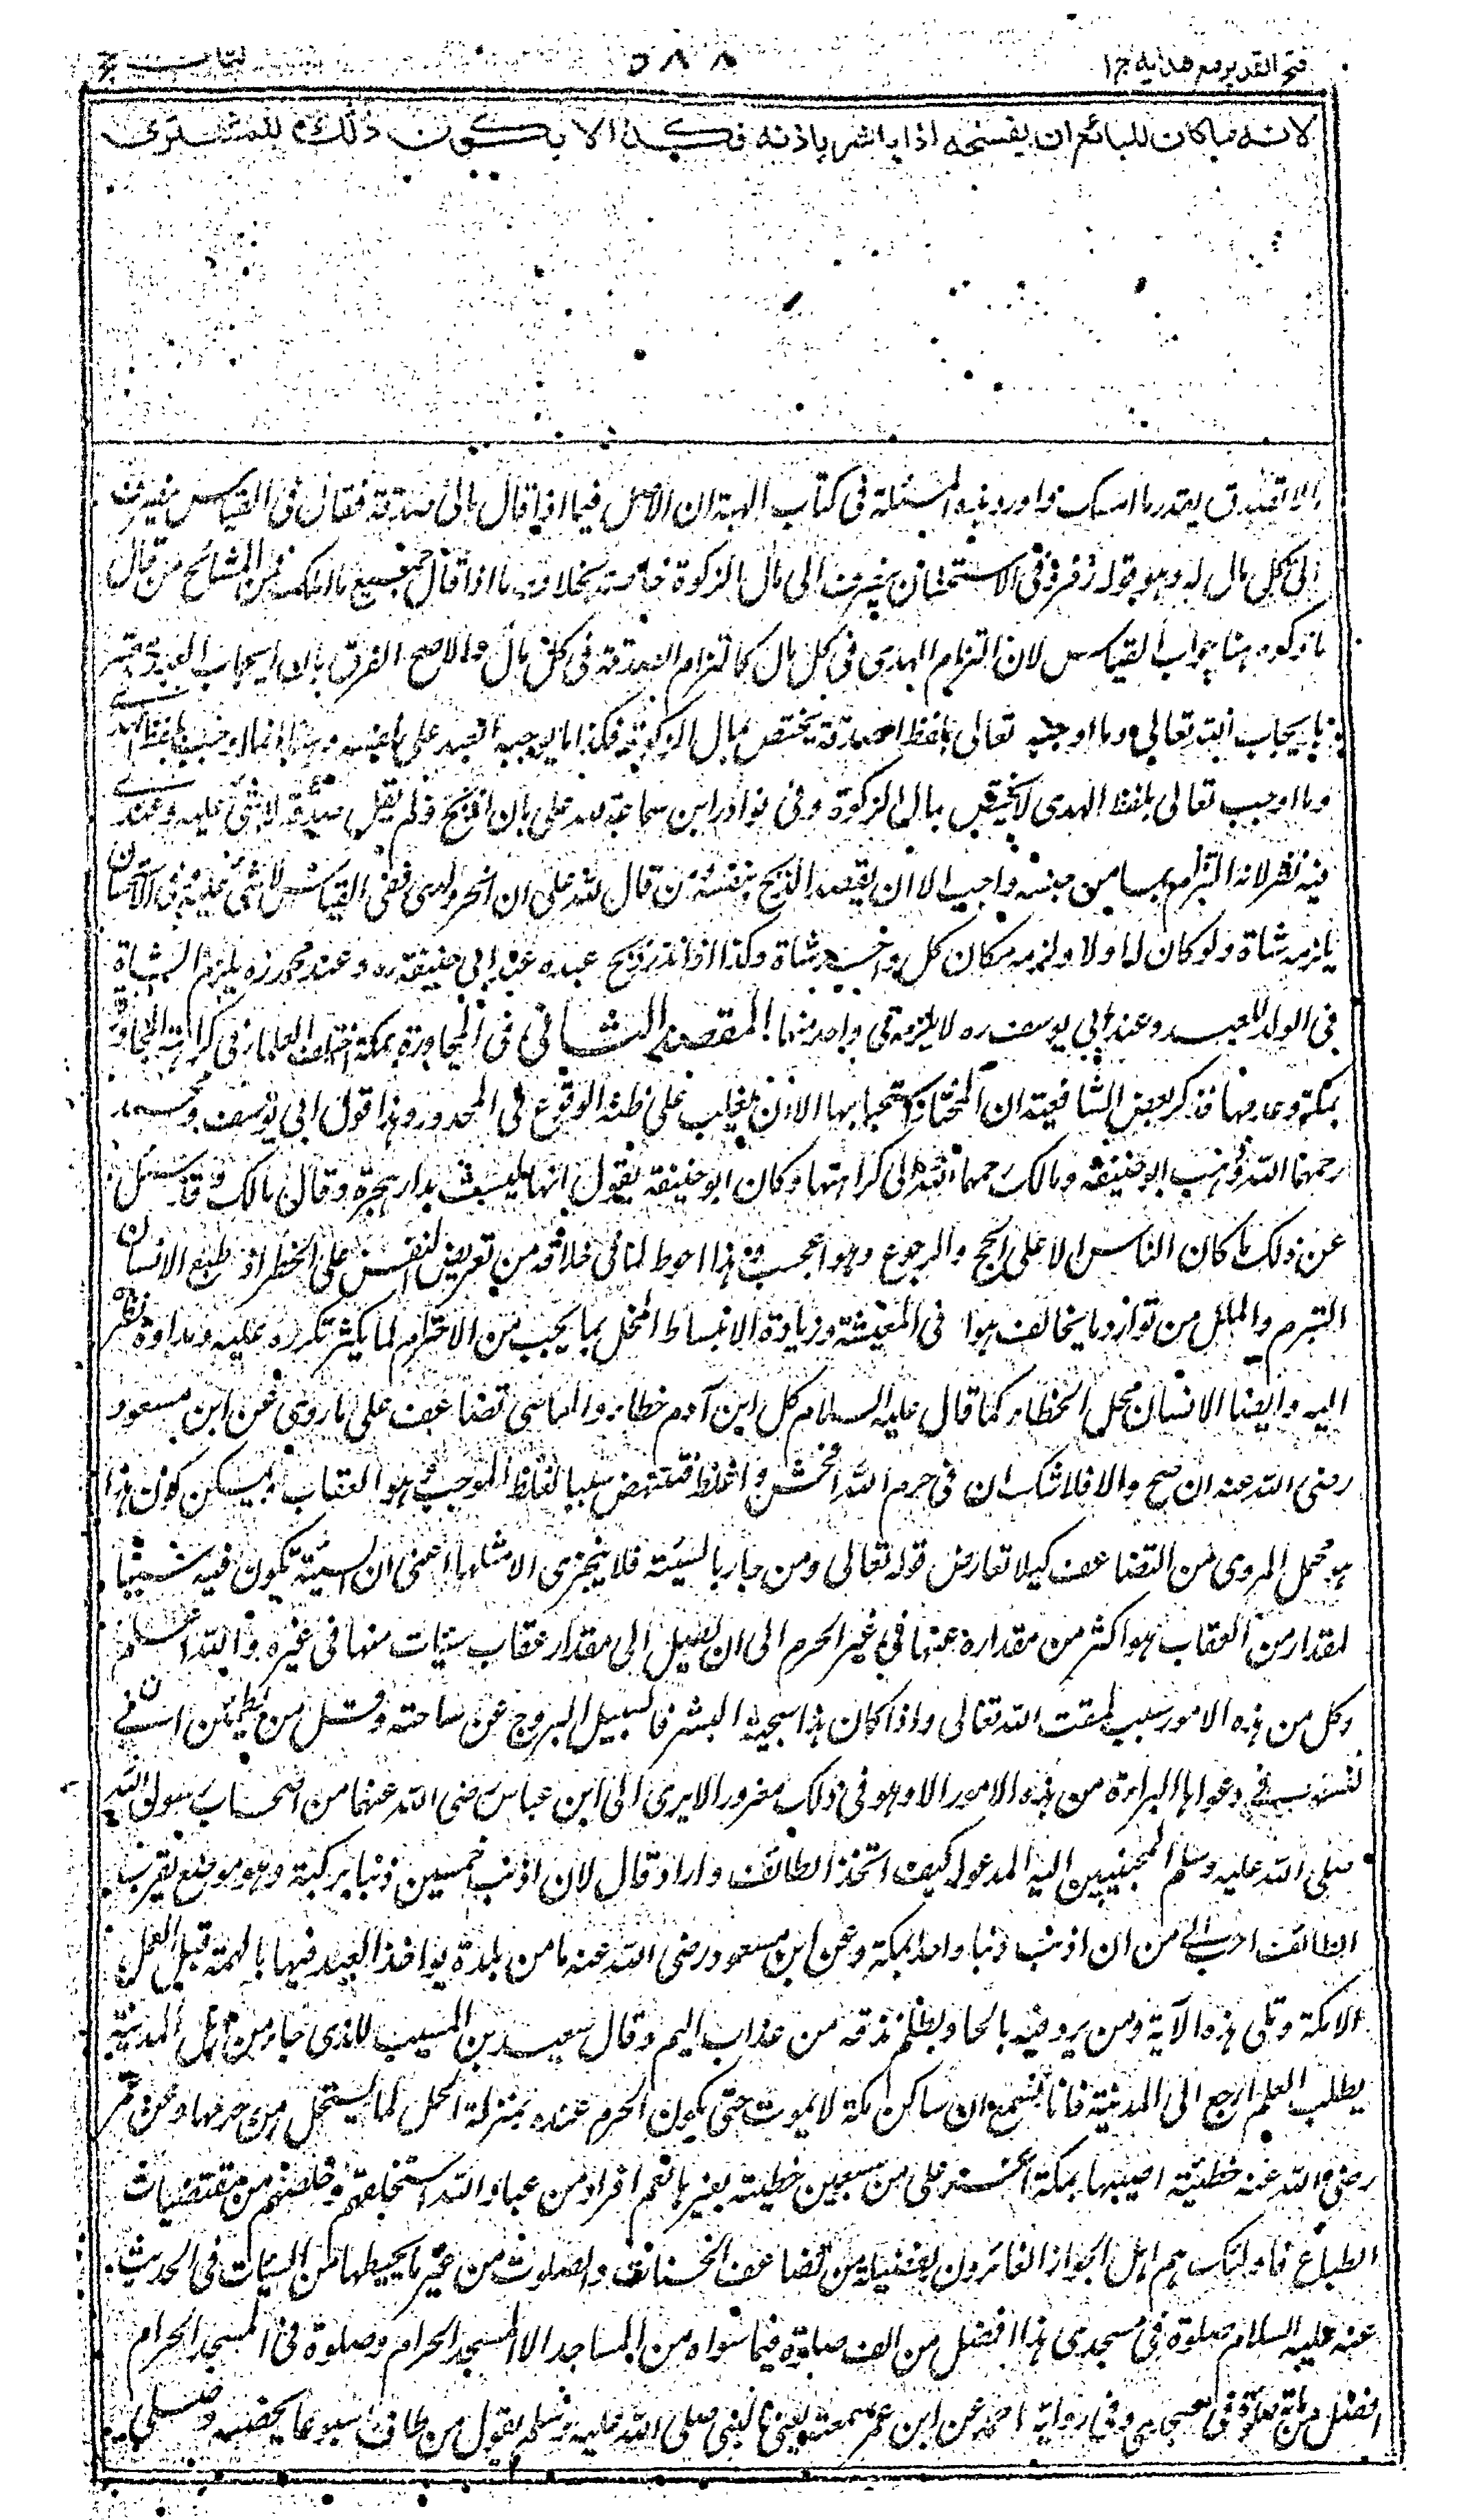 فتح القدير مع هدايه ج ١
٥٨٨
كتاب الحج
لانه ما كان للبائع ان يفسخه اذا باشر باذنه فكذا لا يكون ذلك للمشترى
الا تصدق بقدر ما امسك واورد هذه المسئلة فى كتاب الهبة ان الاصل فيما اذا قال مالى صدقة فقال فى القياس ينصرف
الى كل مال له وهو قول زفر وفى الاستحسان ينصرف الى مال الزكوة خاصة بخلاف ما اذا قال جميع ما املك فمن المشائخ من قال
ما ذكره هنا جواب القياس لان التزام الهدى فى كل مال كالتزام الصدقة فى كل مال والاصح الفرق بان ايجاب العبد معتبر
بايجاب الله تعالى وما اوجبه تعالى بلفظ الصدقة يختص بمال الزكوة فكذا ما يوجبه العبد على نفسه وهنا انما اوجب بلفظ الهدى
وما اوجب تعالى بلفظ الهدى لا يختص بمال الزكوة وفى نوادر ابن سماعة لله على بان اذبح ولم يقل صدقة لا شئ عليه وعندى
فيه نظر لانه التزام بما من جنسه واجب الا ان يقصد الذبح بنفسه من قال لله على ان انحر ولدى ففى القياس لا شئ عليه وفى الاستحسان
يلزمه شاة ولو كان له اولاد لزمه مكان كل واحد شاة وكذا اذا نذر ذبح عبده عند ابى حنيفة ره وعند محمد ره يلزمه الشاة
فى الولد للعبد وعند ابى يوسف ره لا يلزمه فى واحد منهما المقصد الثانى فى المجاورة بمكة اختلف العلماء فى كراهة المجاورة
بمكة وعدمها فذكر بعض الشافعية ان المختار استحبابها الا ان يغلب على ظنه الوقوع فى المحذور وهذا قول ابى يوسف ومحمد
رحمهما الله وذهب ابو حنيفة ومالك رحمهما الله الى كراهتها وكان ابو حنيفة يقول انها ليست بدار هجرة وقال مالك وقد سئل
عن ذلك ما كان الناس الا على الحج والرجوع وهو اعجب وهذا احوط لما فى خلافه من تعريض النفس على الخطر اذ طبع الانسان
التبرم والملل من توارد ما يخالف هواه فى المعيشة وزيادة الانبساط المخل بما يجب من الاحترام لما يكثر تكرره عليه ومداومة نظره
اليه وايضا الانسان محل الخطاء كما قال عليه السلام كل ابن آدم خطاء والمعاصى تضاعف على ما روى عن ابن مسعود
رضى الله عنه ان صح والا فلا شك ان فى حرم الله افحش واغلظ فتنتهض سببا لغلظ الموجب وهو العقاب ويمكن كون هذا
هو محمل المروى من التضاعف كيلا تعارض قوله تعالى ومن جاء بالسيئة فلا يجزى الا مثلها اعنى ان السيئة تكون فيه سببا
لمقدار من العقاب هو اكثر من مقداره عنها فى غير الحرم الى ان يصل الى مقدار عقاب سيئات منها فى غيره والله اعلم
وكل من هذه الامور سبب لمقت الله تعالى واذا كان هذا سجية البشر فالسبيل النزوح عن ساحته وقل من يطمئن الى
نفسه فى دعواها البراءة من هذه الامور الا وهو فى ذلك مغرور الا يرى الى ابن عباس رضى الله عنهما من اصحاب رسول الله
صلى الله عليه وسلم المحببين اليه المدعو له كيف اتخذ الطائف دارا وقال لان اذنب خمسين ذنبا بركبة وهو موضع بقرب
الطائف احب الى من ان اذنب ذنبا واحدا بمكة وعن ابن مسعود رضى الله عنه ما من بلدة يؤاخذ العبد فيها بالهمة قبل العمل
الا مكة وتلى هذه الآية ومن يرد فيه بالحاد بظلم نذقه من عذاب اليم وقال سعيد بن المسيب للذى جاء من اهل المدينة
يطلب العلم ارجع الى المدينة فانا نسمع ان ساكن مكة لا يموت حتى يكون الحرم عنده بمنزلة الحل لما يستحل من حرمها وعن عمر
رضى الله عنه خطيئة اصيبها بمكة اعز على من سبعين خطيئة بغيرها نعم افراد من عباد الله استخلصهم وخلصهم من مقتضيات
الطباع فاولئك هم اهل الجوار الفائزون بفضيلة من تضاعف الحسنات والصلوت من غير ما يحبطها من السيئات فى الحديث
عنه عليه السلام صلوة فى مسجدى هذا افضل من الف صلوة فيما سواه من المساجد الا المسجد الحرام وصلوة فى المسجد الحرام
افضل من مائة صلوة فى مسجدى وفى رواية احمد عن ابن عمر سمعته يعنى النبى صلى الله عليه وسلم يقول من طاف اسبوعا يحصيه وصلى